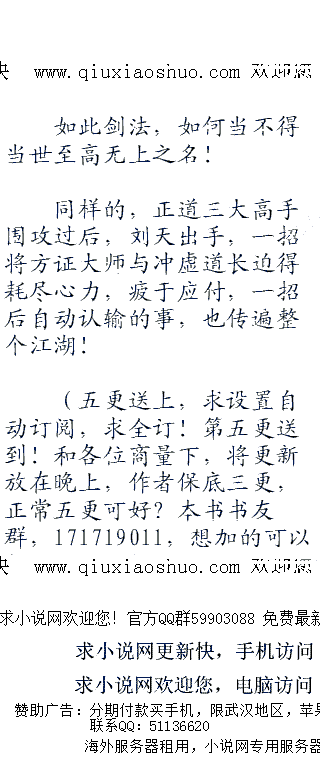 www.qiuxiaoshuo.com 欢迎您
如此剑法，如何当不得
当世至高无上之名！
同样的，正道三大高手
围攻过后，刘天出手，一招
将方证大师与冲虚道长迫得
耗尽心力，疲于应付，一招
后自动认输的事，也传遍整
个江湖！
（五更送上，求设置自
动订阅，求全订！第五更送
到！和各位商量下，将更新
放在晚上，作者保底三更，
正常五更可好？本书书友
群，171719011，想加的可以
快 www.qiuxiaoshuo.com 欢迎您
求小说网欢迎您！官方QQ群59903088 免费最新
求小说网更新快，手机访问
求小说网欢迎您，电脑访问
赞助广告：分期付款买手机，限武汉地区，苹果
联系QQ：51136620
海外服务器租用，小说网专用服务器